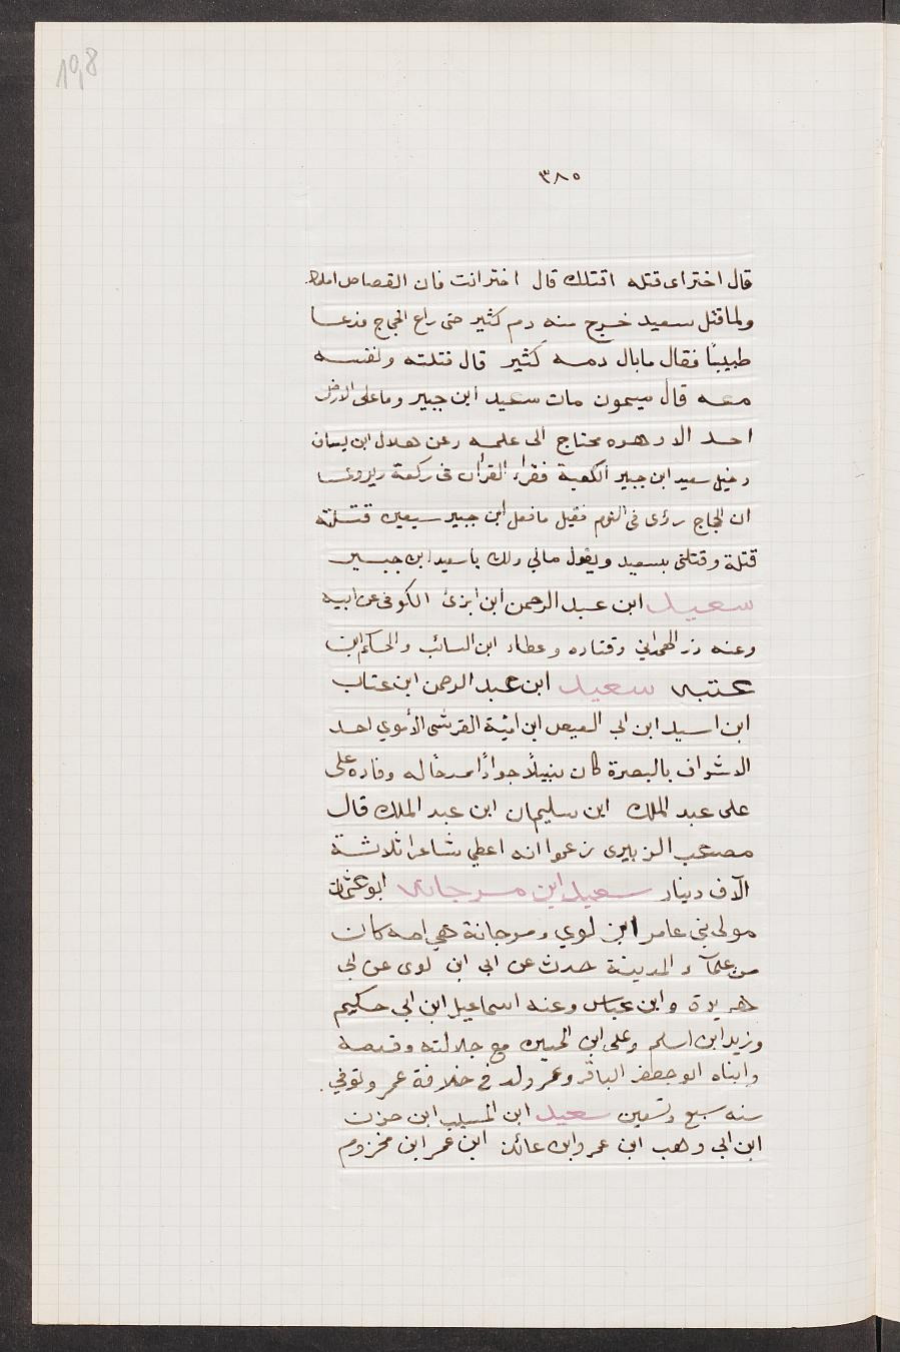 198
٣٨٥
قال اختر اى قتله اقتلك قال اختر انت فان القصاص امامك
ولما قتل سعيد خرج منه دم كثير حتى راع الحجاج فدعا
طبيبًا فقال ما بال دمه كثير قال قتلته ونفسه
معه قال ميمون مات سعيد ابن جبير وما على الارض
احد الا وهوه محتاج الى علمه وعن هلال ابن يسان
دخل سعيد ابن جبير الكعبة فقراء القران فى ركعة
ان الحجاج رؤى فى النوم فقيل ما فعل ابن جبير سبعين قتلته
قتلة وقتلنى بسعيد ويقول مالي ولك يا سعيد ابن جبير
سعيد ابن عبد الرحمن ابن ابزى الكوفى عن ابيه
وعنه ذر الهمداني وقتاده وعطاء ابن السائب والحكم ابن
عتبه سعيد ابن عبد الرحمن ابن عتاب
ابن اسيد ابن ابى العيص ابن اميّة القرشى الأموي احد
الاشراف بالبصرة كان نبيلًا جوادًا له وفاده على
على عبد الملك ابن سليمان ابن عبد الملك قال
مصعب الزبيرى زعموا انه اعطي شاعرا ثلاثة
آلاف دينار سعيد ابن مرجانه ابو عثمان
مولى بنى عامر ابن لوي ومرجانة هي امه كان
من علمآء المدينة حدث عن ابى ابن لوى عن ابى
هريرة وابن عباس وعنه اسماعيل ابن ابى حكيم
وزيد ابن اسلم وعلى ابن الحسين مع جلالته
وابناه ابو جعفر الباقر وعمر ولد فى خلافة عمر وتوفي
سنه سبع وتسعين سعيد ابن المسيب ابن حزن
ابن ابى وهب ابن عمر وابن عائذ ابن عمر ابن مخزوم